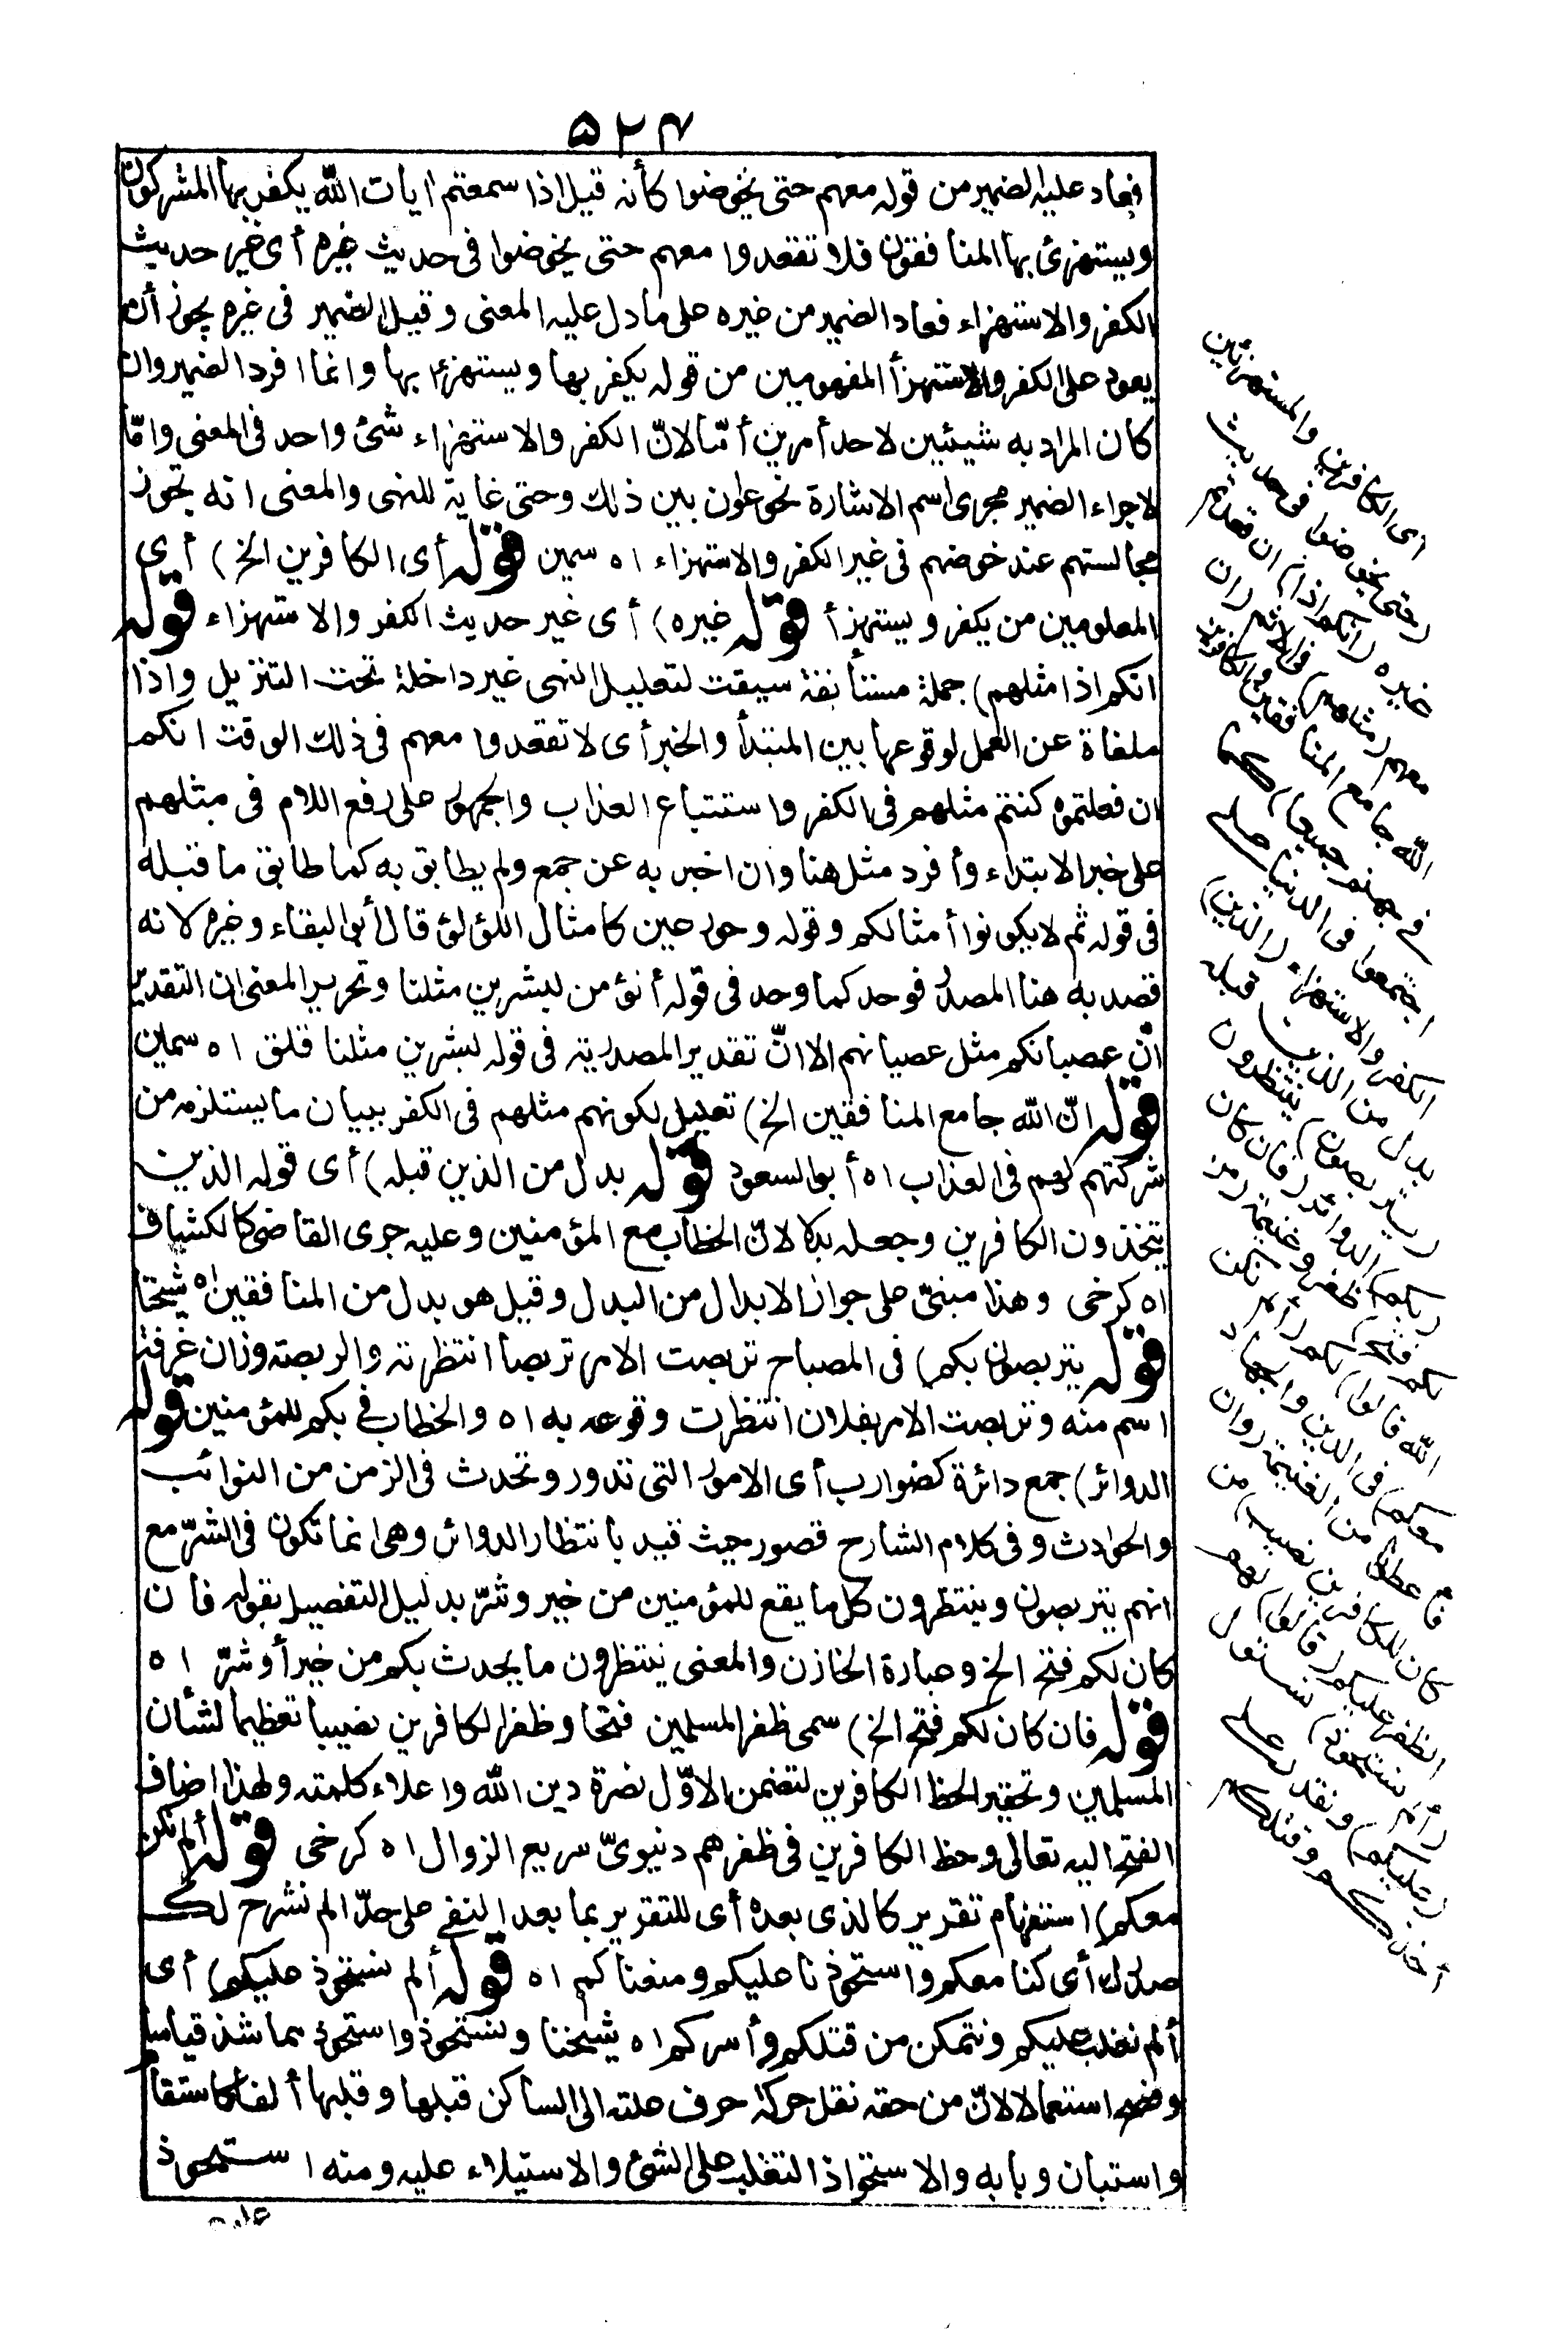 ٥٢٤
فعاد عليه الضمير من قوله معهم حتى يخوضوا كأنه قيل اذا سمعتم ايات الله يكفر بها المشركون
ويستهزئ بها المنافقون فلا تقعدوا معهم حتى يخوضوا فى حديث غيره أى غير حديث
الكفر والاستهزاء فعاد الضمير من غيره على ما دل عليه المعنى وقيل الضمير فى غيره يجوز أن
يعود على الكفر والاستهزأ المفهومين من قوله يكفر بها ويستهزء بها وانما افرد الضمير وان
كان المراد به شيئين لاحد أمرين أمّا لانّ الكفر والاستهزاء شئ واحد فى المعنى وامّا
لاجراء الضمير مجرى اسم الاشارة نحو عوان بين ذلك وحتى غاية للنهى والمعنى انه تجوز
مجالستهم عند خوضهم فى غير الكفر والاستهزاء اه سمين قوله أى الكافرين الخ) أى
المعلومين من يكفر ويستهزأ قوله غيره) أى غير حديث الكفر والاستهزاء قوله
انكم اذا مثلهم) جملة مستأنفة سيقت لتعليل النهى غير داخلة تحت التنزيل واذا
ملغاة عن العمل لوقوعها بين المبتدأ والخبر أى لا تقعدوا معهم فى ذلك الوقت انكم
ان فعلتموه كنتم مثلهم فى الكفر واستتباع العذاب والجمهور على رفع اللام فى مثلهم
على خبر الابتداء وأفرد مثل هنا وان اخبر به عن جمع ولم يطابق به كما طابق ما قبله
فى قوله ثم لا يكونوا أمثالكم وقوله وحور عين كامثال اللؤلؤ قال أبو البقاء وغيره لانه
قصد به هنا المصدر فوحد كما وحد فى قوله أنؤمن لبشرين مثلنا وتحرير المعنى ان التقدير
انّ عصيانكم مثل عصيانهم الا انّ تقدير المصدرية فى قوله لبشرين مثلنا قلق اه سمين
قوله انّ الله جامع المنافقين الخ) تعليل لكونهم مثلهم فى الكفر ببيان ما يستلزمه من
شركتهم لهم فى العذاب اه أبو السعود قوله بدل من الذين قبله) أى قوله الذين
يتخذون الكافرين وجعله بدلا لانّ الخطاب مع المؤمنين وعليه جرى القاضى كالكشاف
اه كرخى وهذا مبنىّ على جواز الابدال من البدل وقيل هو بدل من المنافقين اه شيخنا
قوله يتربصون بكم) فى المصباح تربصت الامر تربصا انتظرته والربصة وزان غرفة
اسم منه وتربصت الامر بفلان انتظرت وقوعه به اه والخطاب فى بكم للمؤمنين قوله
الدوائر) جمع دائرة كضوارب أى الامور التى تدور وتحدث فى الزمن من النوائب
والحوادث وفى كلام الشارح قصور حيث قيد بانتظار الدوائر وهى انما تكون فى الشرّ مع
انهم يتربصون وينتظرون كل ما يقع للمؤمنين من خير وشرّ بدليل التفصيل بقوله فان
كان لكم فتح الخ وعبارة الخازن والمعنى ينتظرون ما يحدث بكم من خير أو شرّ اه
قوله فان كان لكم فتح الخ) سمى ظفر المسلمين فتحا وظفر الكافرين نصيبا تعظيما لشأن
المسلمين وتحقير الحظ الكافرين لتضمن الاوّل نصرة دين الله واعلاء كلمته ولهذا اضاف
الفتح اليه تعالى وحظ الكافرين فى ظفرهم دنيوىّ سريع الزوال اه كرخى قوله ألم نكن
معكم) استفهام تقرير كالذى بعده أى للتقرير بما بعد النفى على حدّ الم نشرح لك
صدرك أى كنا معكم واستحوذنا عليكم ومنعناكم اه قوله ألم نستحوذ عليكم) أى
ألم نغلب عليكم ونتمكن من قتلكم وأسركم اه شيخنا ونستحوذ واستحوذ مما شذ قياسا
وفصح استعمالا لانّ من حقه نقل حركة حرف علته الى الساكن قبلها وقلبها ألفا كاستقام
واستبان وبابه والاستحواذ التغلب على الشئ والاستيلاء عليه ومنه استحوذ
أى الكافرين والمستهزئين
(حتى يخوضوا فى حديث
غيره انكم اذا) ان قعدتم
معهم (مثلهم) فى الاثم (ان
الله جامع المنافقين والكافرين
فى جهنم جميعا) كما
اجتمعوا فى الدنيا على
الكفر والاستهزاء (الذين)
بدل من الذين قبله
(يتربصون) ينتظرون
(بكم) الدوائر (فان كان
لكم فتح) ظفر وغنيمة (من
الله قالوا) لكم (ألم نكن
معكم) فى الدين والجهاد
فأعطونا من الغنيمة (وان
كان للكافرين نصيب) من
الظفر عليكم (قالوا) لهم
(ألم نستحوذ) نستول
(عليكم) ونقدر على
أخذكم وقتلكم